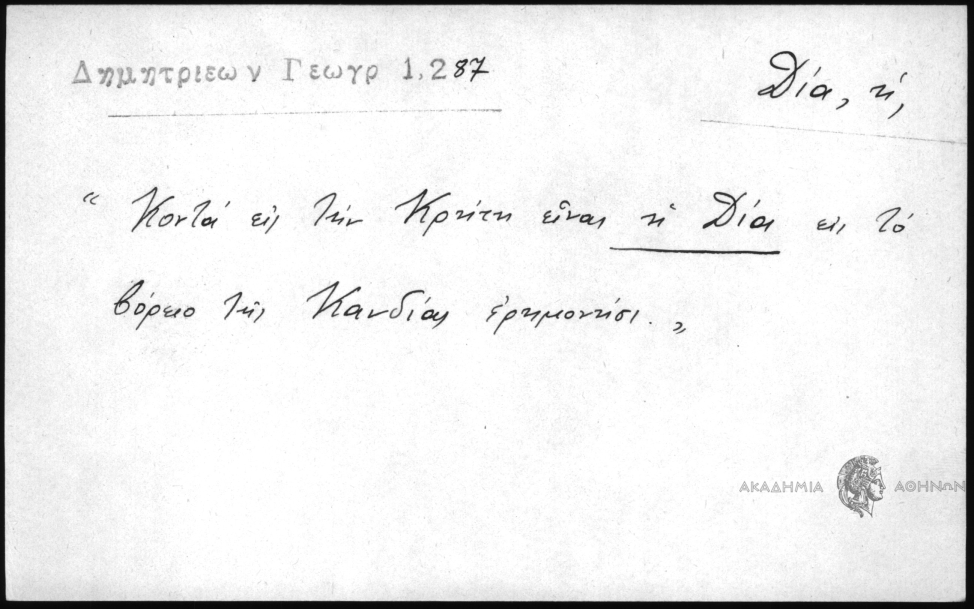 Δημητριεων Γεωγρ 1,287
Δία, ἡ,
“ Κοντά εἰς τὴν Κρήτη εἶναι ἡ Δία εἰς τό
βόρειο τῆς Κανδίας ἐρημονήσι. „
ΑΚΑΔΗΜΙΑ ΑΘΗΝΩΝ